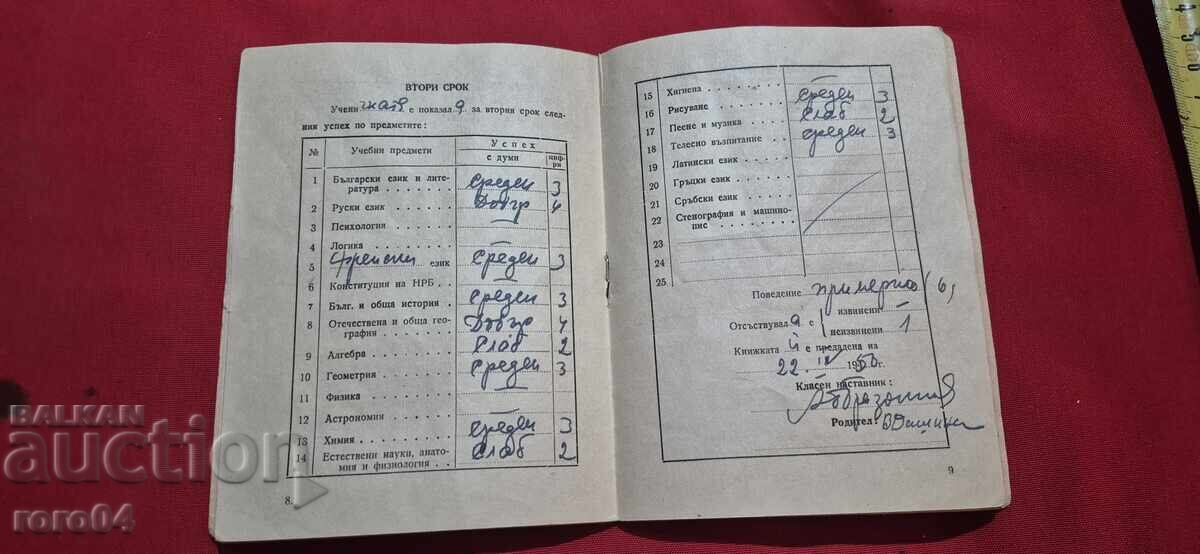 ВТОРИ СРОК
Учени чката е показала за втория срок след-
ния успех по предметите:
№ Учебни предмети Успех
с думи циф-
ри
1 Български език и лите-
ратура . . . . . . . Среден 3
2 Руски език . . . . . . Добър 4
3 Психология . . . . . . —
4 Логика . . . . . . . —
5 Френски език Среден 3
6 Конституция на НРБ . . . —
7 Бълг. и обща история . . Среден 3
8 Отечествена и обща гео-
графия . . . . . . . Добър 4
9 Алгебра . . . . . . . Слаб 2
10 Геометрия . . . . . . Среден 3
11 Физика . . . . . . .
12 Астрономия . . . . . . —
13 Химия . . . . . . . Среден 3
14 Естествени науки, анато-
мия и физиология . . Слаб 2
8.
15 Хигиена . . . . . . . —
16 Рисуване . . . . . . Среден 3
17 Песне и музика . . . . Слаб 2
18 Телесно възпитание . . . Среден 3
19 Латински език . . . . .
20 Гръцки език . . . . . .
21 Сръбски език . . . . . .
22 Стенография и машино-
пис . . . . . . . .
23
24
25
Поведение примерно (6)
Отсъствувала е { извинени —
неизвинени 1
Книжката й е предадена на
22. IV 1950 г.
Класен наставник:
Родител:
9
BALKAN
auction
roro04
4
5